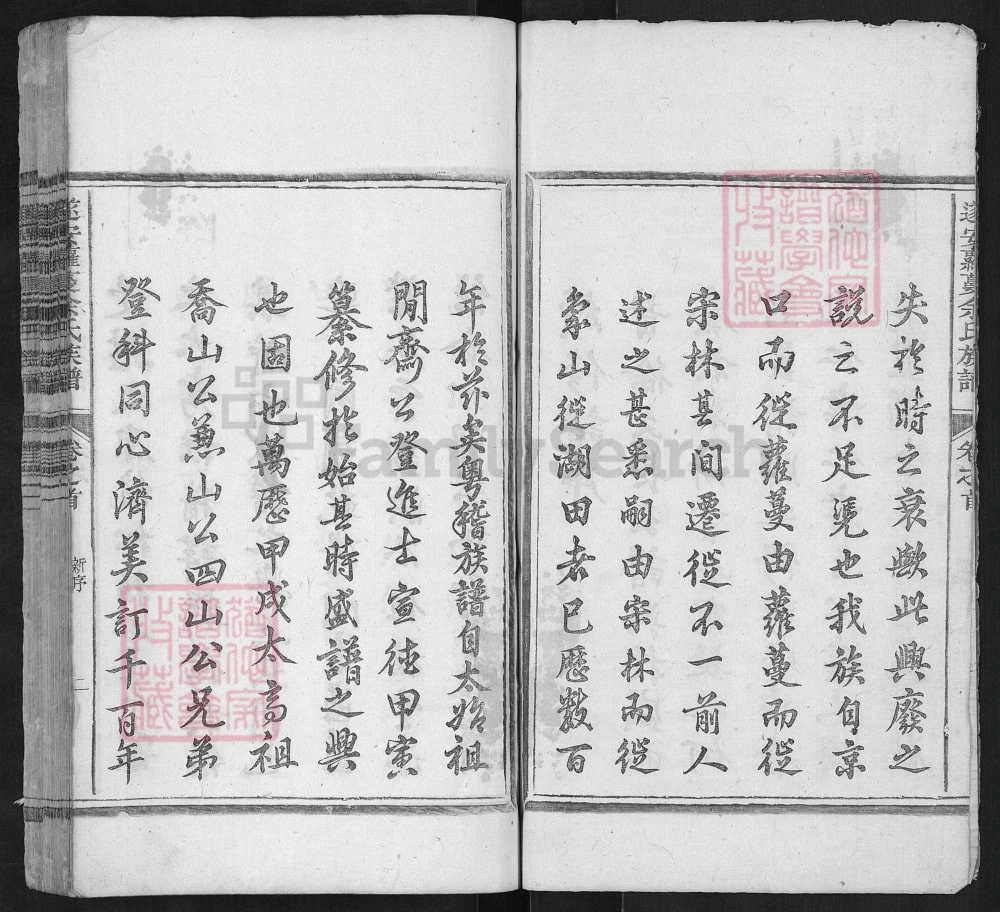 遂安蘿蔓余氏族譜 卷之首
失於時之衰歟此興廢之
說云不足凴也我族自京
口而從蘿蔓由蘿蔓而從
宗林其间遷從不一前人
述之甚悉嗣由宗林而從
象山從湖田者已歷數百
年於茲矣粤稽族譜自太始祖
閒齋公登進士宣德甲寅
纂修於始其時盛譜之興
也固也萬歷甲戌太高祖
喬山公兼山公四山公兄弟
登科同心濟美訂千百年
遂安蘿蔓余氏族譜 卷之首 新序 一
德家
譜學會
收藏
德家
譜學會
收藏
FamilySearch